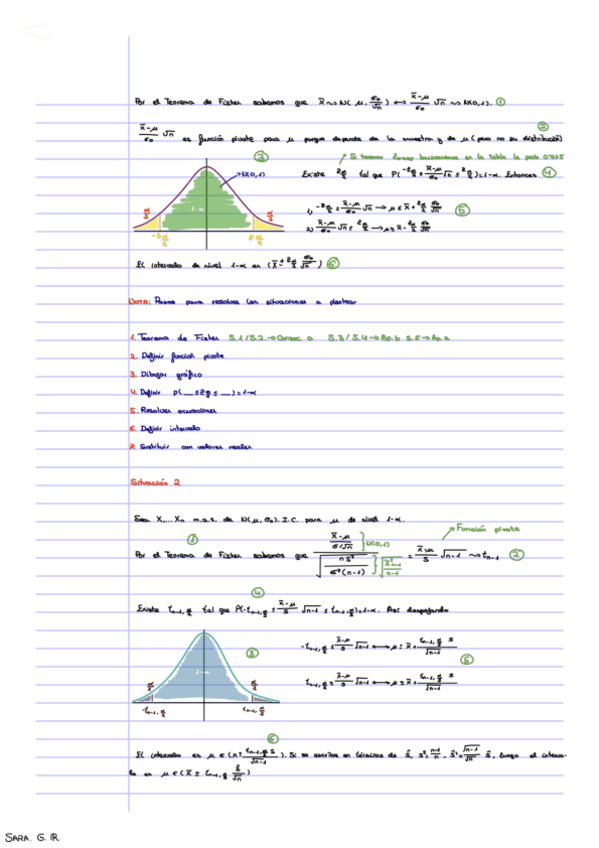 Por el Teorema de Fisher sabemos que X̄ ~> N(μ, σ₀/√n) <-> (X̄-μ)/σ₀ √n ~> N(0,1). ①
(X̄-μ)/σ₀ √n es función pivote para μ porque depende de la muestra y de μ (pero no su distribución) ②
③
N(0,1)
1-α
α/2
α/2
-z α/2
z α/2
Si tenemos buscaremos en la tabla la prob 0'975
Existe z α/2 tal que P(-z α/2 ≤ (X̄-μ)/σ₀ √n ≤ z α/2)=1-α. Entonces ④
1) -z α/2 ≤ (X̄-μ)/σ₀ √n -> μ ≤ X̄ + z α/2 σ₀/√n
⑤
2) (X̄-μ)/σ₀ √n ≤ z α/2 -> μ ≥ X̄ - z α/2 σ₀/√n
El intervalo de nivel 1-α es (X̄ ± z α/2 σ₀/√n) ⑥
NOTA: Pasos para resolver las situaciones a plantear
1. Teorema de Fisher S.1/S.2.->Consec. a S.3/S.4->Ap.b S.5->Ap.a
2. Definir función pivote
3. Dibujar gráfico
4. Definir P(__≤ ≤__)=1-α
5. Resolver ecuaciones
6. Definir intervalo
7. Sustituir con valores reales
Situación 2
Sea X₁...Xn m.a.s. de N(μ, σ₀). I.C. para μ de nivel 1-α.
Función pivote
①
Por el Teorema de Fisher sabemos que ((X̄-μ)/(σ/√n)) }N(0,1) / √(nS²/(σ²(n-1))) = (X̄-μ)/S √n-1 ~> t n-1 ②
④
Existe t n-1, α/2 tal que P(-t n-1, α/2 ≤ (X̄-μ)/S √n-1 ≤ t n-1, α/2)=1-α. Así despejando
③
1-α
α/2
α/2
-t n-1, α/2
t n-1, α/2
⑤
⑥
El intervalo es μ ∈ (X̄ ± t n-1, α/2 S/√n-1). Si se escribe en términos de luego el interva-
lo es μ ∈ (X̄ ± t n-1, α/2 Ŝ/√n)
SARA. G. R.